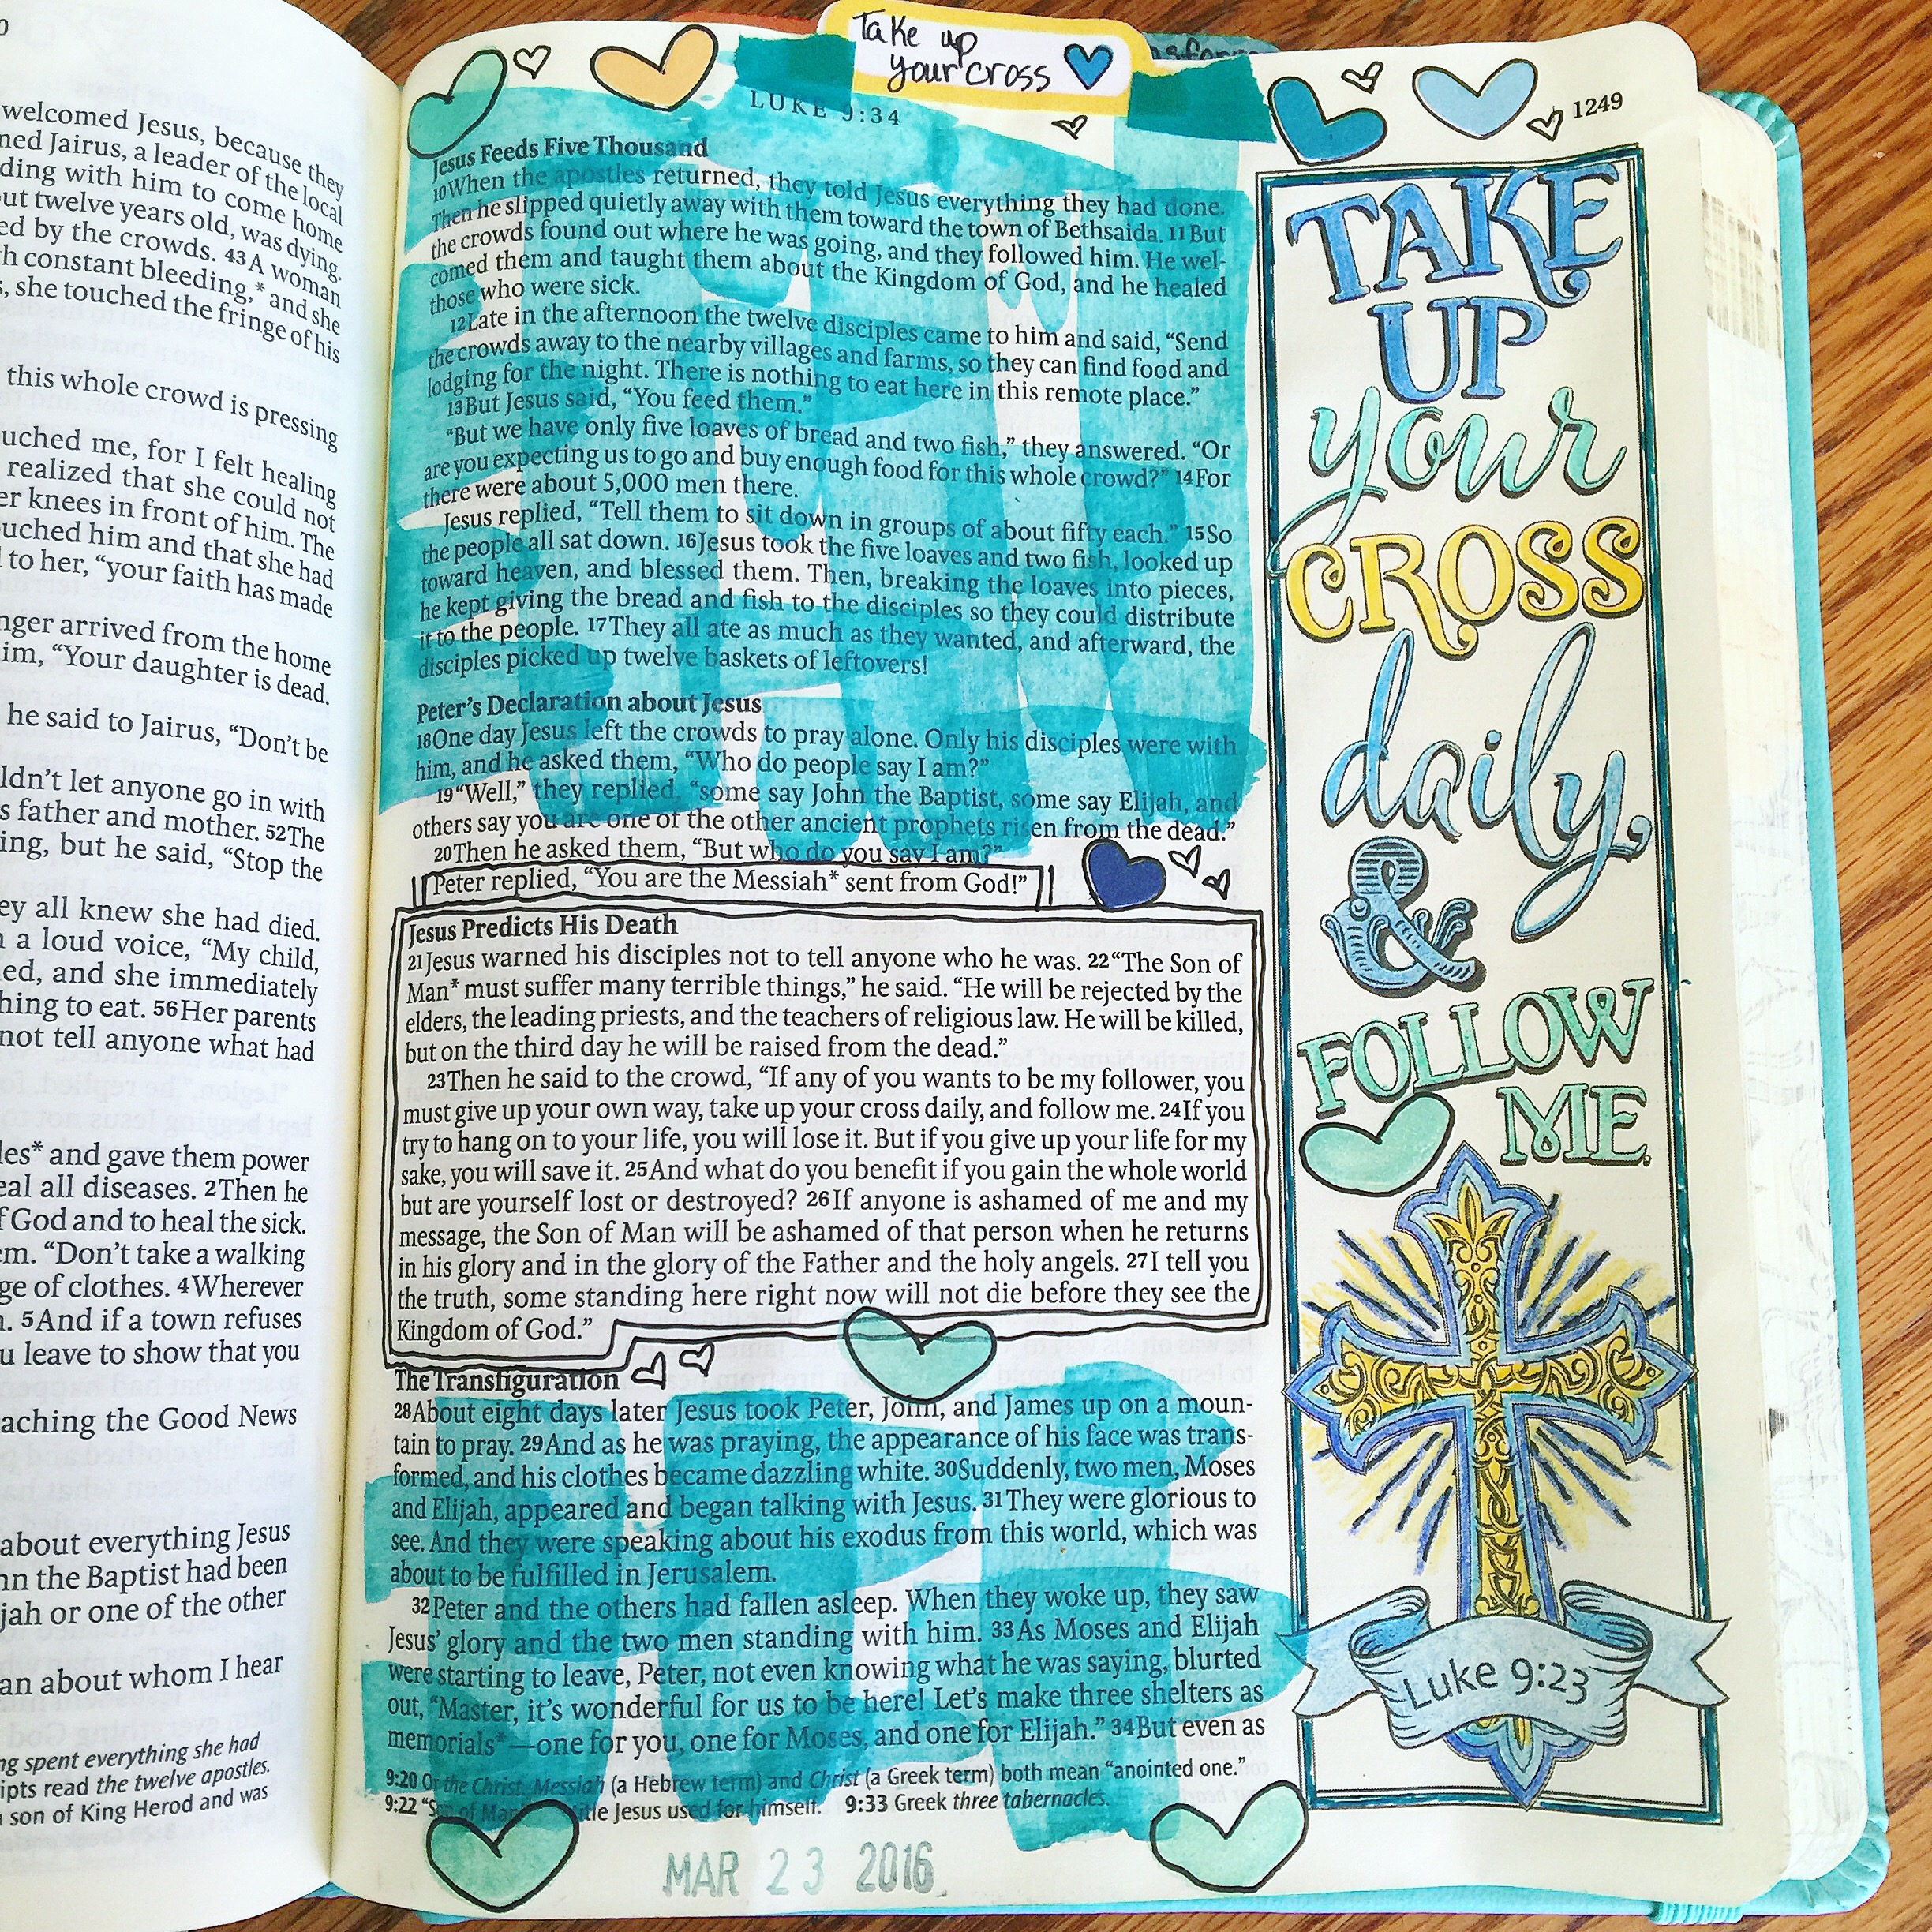 welcomed Jesus, because they
Jairus, a leader of the local
with him to come home
twelve years old, was dying.
by the crowds. 43A woman
constant bleeding,* and she
she touched the fringe of his
this whole crowd is pressing
me, for I felt healing
realized that she could not
knees in front of him. The
him and that she had
to her, “your faith has made
arrived from the home
“Your daughter is dead.
he said to Jairus, “Don’t be
let anyone go in with
father and mother. 52The
but he said, “Stop the
all knew she had died.
a loud voice, “My child,
and she immediately
to eat. 56Her parents
not tell anyone what had
and gave them power
all diseases. 2Then he
God and to heal the sick.
“Don’t take a walking
of clothes. 4Wherever
5And if a town refuses
leave to show that you
the Good News
about everything Jesus
the Baptist had been
or one of the other
about whom I hear
spent everything she had
read the twelve apostles.
son of King Herod and was
Take up
your cross
LUKE 9:34
1249
Jesus Feeds Five Thousand
10When the apostles returned, they told Jesus everything they had done.
Then he slipped quietly away with them toward the town of Bethsaida. 11But
the crowds found out where he was going, and they followed him. He wel-
comed them and taught them about the Kingdom of God, and he healed
those who were sick.
12Late in the afternoon the twelve disciples came to him and said, “Send
the crowds away to the nearby villages and farms, so they can find food and
lodging for the night. There is nothing to eat here in this remote place.”
13But Jesus said, “You feed them.”
“But we have only five loaves of bread and two fish,” they answered. “Or
are you expecting us to go and buy enough food for this whole crowd?” 14For
there were about 5,000 men there.
Jesus replied, “Tell them to sit down in groups of about fifty each.” 15So
the people all sat down. 16Jesus took the five loaves and two fish, looked up
toward heaven, and blessed them. Then, breaking the loaves into pieces,
he kept giving the bread and fish to the disciples so they could distribute
it to the people. 17They all ate as much as they wanted, and afterward, the
disciples picked up twelve baskets of leftovers!
Peter’s Declaration about Jesus
18One day Jesus left the crowds to pray alone. Only his disciples were with
him, and he asked them, “Who do people say I am?”
19“Well,” they replied, “some say John the Baptist, some say Elijah, and
others say you are one of the other ancient prophets risen from the dead.”
20Then he asked them, “But who do you say I am?”
Peter replied, “You are the Messiah* sent from God!”
Jesus Predicts His Death
21Jesus warned his disciples not to tell anyone who he was. 22“The Son of
Man* must suffer many terrible things,” he said. “He will be rejected by the
elders, the leading priests, and the teachers of religious law. He will be killed,
but on the third day he will be raised from the dead.”
23Then he said to the crowd, “If any of you wants to be my follower, you
must give up your own way, take up your cross daily, and follow me. 24If you
try to hang on to your life, you will lose it. But if you give up your life for my
sake, you will save it. 25And what do you benefit if you gain the whole world
but are yourself lost or destroyed? 26If anyone is ashamed of me and my
message, the Son of Man will be ashamed of that person when he returns
in his glory and in the glory of the Father and the holy angels. 27I tell you
the truth, some standing here right now will not die before they see the
Kingdom of God.”
The Transfiguration
28About eight days later Jesus took Peter, John, and James up on a moun-
tain to pray. 29And as he was praying, the appearance of his face was trans-
formed, and his clothes became dazzling white. 30Suddenly, two men, Moses
and Elijah, appeared and began talking with Jesus. 31They were glorious to
see. And they were speaking about his exodus from this world, which was
about to be fulfilled in Jerusalem.
32Peter and the others had fallen asleep. When they woke up, they saw
Jesus’ glory and the two men standing with him. 33As Moses and Elijah
were starting to leave, Peter, not even knowing what he was saying, blurted
out, “Master, it’s wonderful for us to be here! Let’s make three shelters as
memorials*—one for you, one for Moses, and one for Elijah.” 34But even as
9:20 Or the Christ. Messiah (a Hebrew term) and Christ (a Greek term) both mean “anointed one.”
9:22 “Son of Man” Jesus used for himself. 9:33 Greek three tabernacles.
MAR 23 2016
TAKE
UP
your
CROSS
daily,
&
FOLLOW
ME.
Luke 9:23